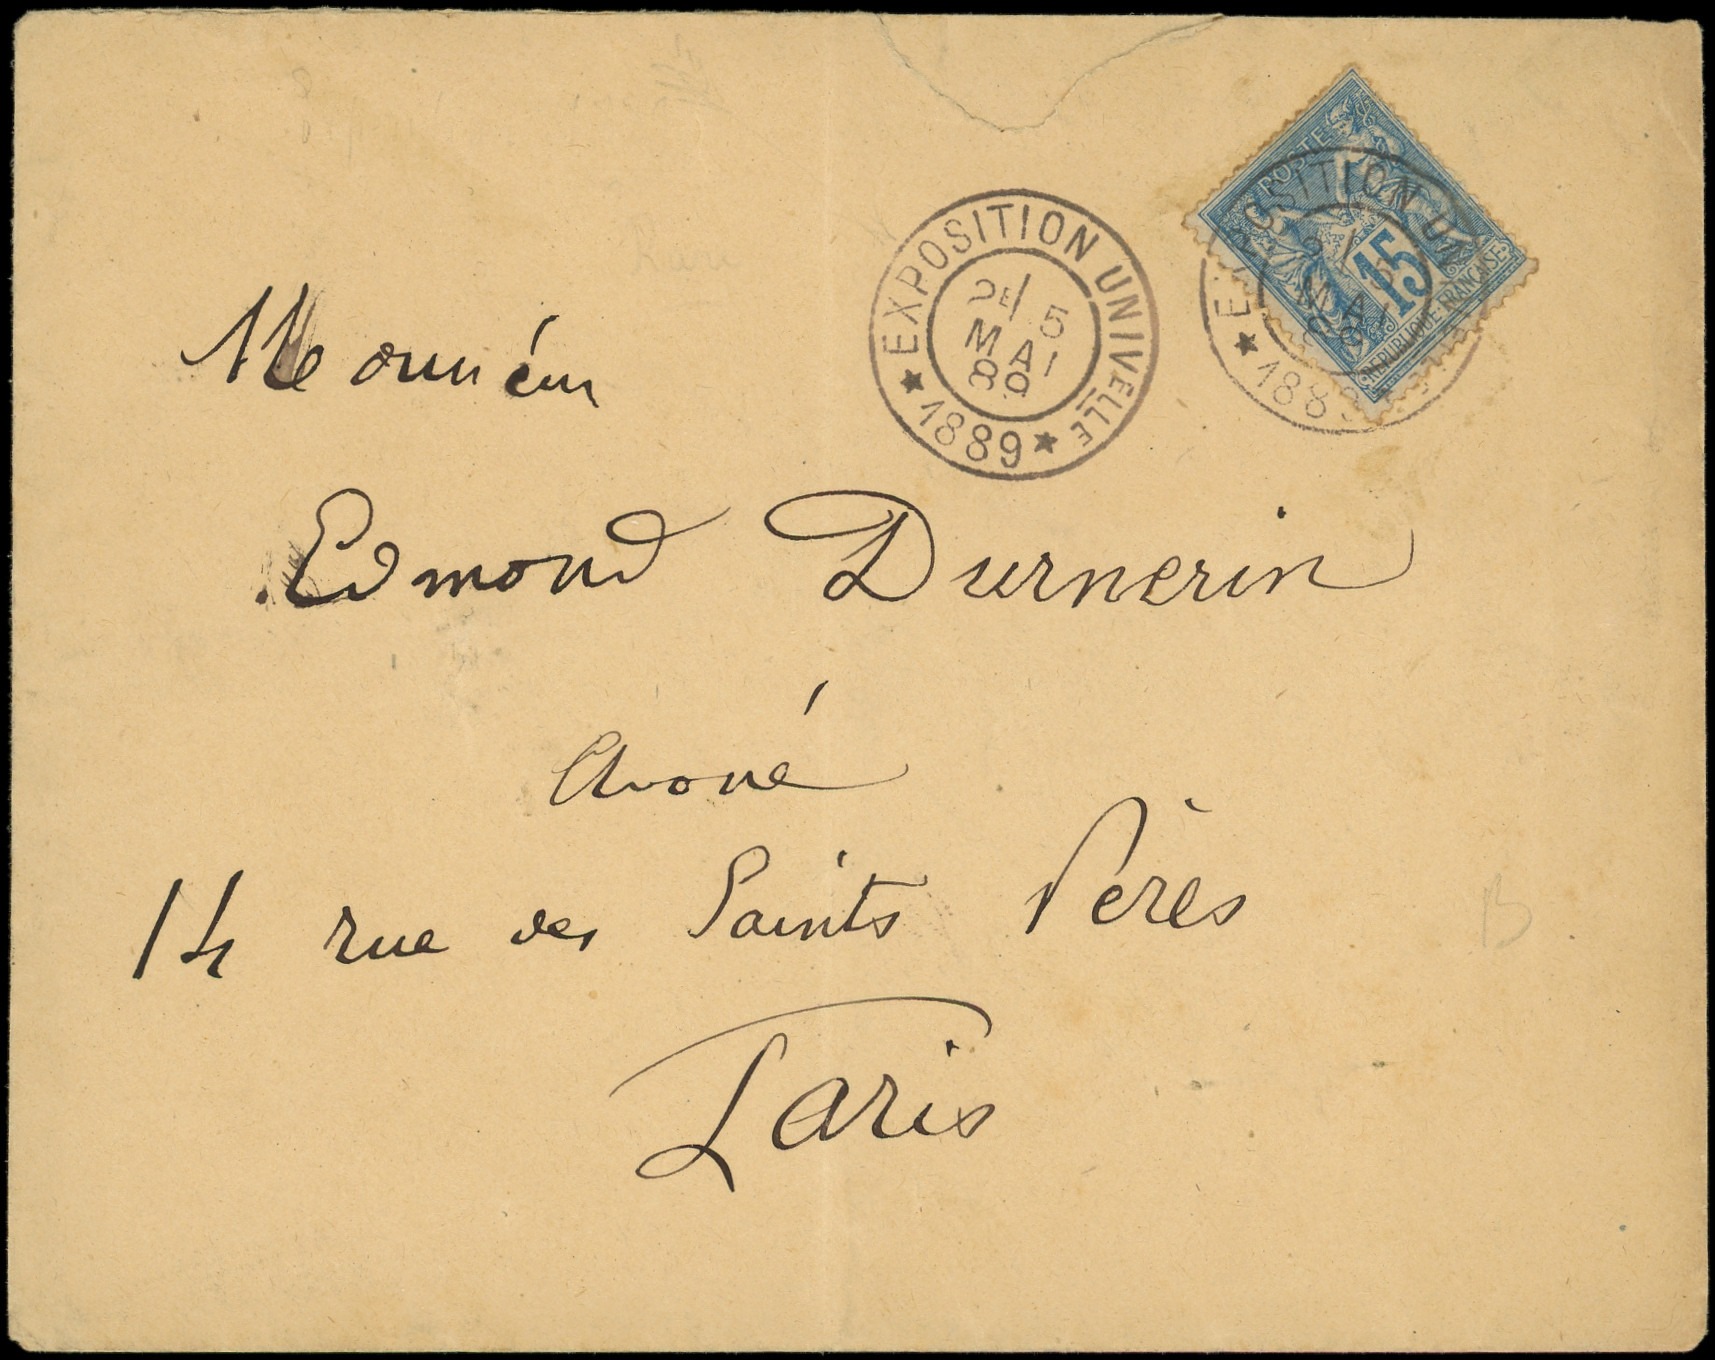 EXPOSITION UNIVELLE
2E/ 5
MAI
89
★ 1889 ★
POSTES
15
REPUBLIQUE FRANÇAISE
Monsieur
Edmond Durnerin
Avoué
14 rue des Saints Pères
Paris
B